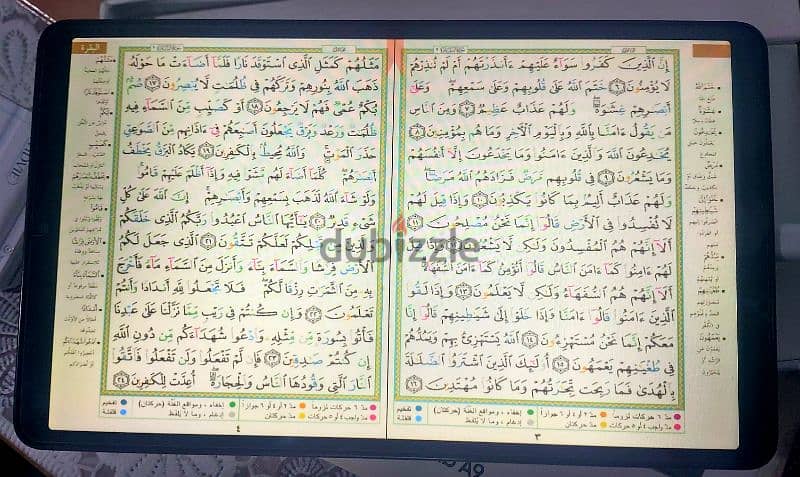 إِنَّ الَّذِينَ كَفَرُوا سَوَآءٌ عَلَيْهِمْ ءَأَنذَرْتَهُمْ أَمْ لَمْ تُنذِرْهُمْ
لَا يُؤْمِنُونَ ٦ خَتَمَ اللَّهُ عَلَىٰ قُلُوبِهِمْ وَعَلَىٰ سَمْعِهِمْ وَعَلَىٰ
أَبْصَٰرِهِمْ غِشَٰوَةٌ وَلَهُمْ عَذَابٌ عَظِيمٌ ٧ وَمِنَ النَّاسِ
مَن يَقُولُ ءَامَنَّا بِاللَّهِ وَبِالْيَوْمِ الْآخِرِ وَمَا هُم بِمُؤْمِنِينَ ٨
يُخَٰدِعُونَ اللَّهَ وَالَّذِينَ ءَامَنُوا وَمَا يَخْدَعُونَ إِلَّا أَنفُسَهُمْ
وَمَا يَشْعُرُونَ ٩ فِي قُلُوبِهِم مَّرَضٌ فَزَادَهُمُ اللَّهُ مَرَضًا
وَلَهُمْ عَذَابٌ أَلِيمٌ بِمَا كَانُوا يَكْذِبُونَ ١٠ وَإِذَا قِيلَ لَهُمْ
لَا تُفْسِدُوا فِي الْأَرْضِ قَالُوا إِنَّمَا نَحْنُ مُصْلِحُونَ ١١
أَلَآ إِنَّهُمْ هُمُ الْمُفْسِدُونَ وَلَٰكِن لَّا يَشْعُرُونَ ١٢ وَإِذَا قِيلَ
لَهُمْ ءَامِنُوا كَمَآ ءَامَنَ النَّاسُ قَالُوٓا أَنُؤْمِنُ كَمَآ ءَامَنَ السُّفَهَآءُ
أَلَآ إِنَّهُمْ هُمُ السُّفَهَآءُ وَلَٰكِن لَّا يَعْلَمُونَ ١٣ وَإِذَا لَقُوا
الَّذِينَ ءَامَنُوا قَالُوٓا ءَامَنَّا وَإِذَا خَلَوْا إِلَىٰ شَيَٰطِينِهِمْ قَالُوٓا إِنَّا
مَعَكُمْ إِنَّمَا نَحْنُ مُسْتَهْزِءُونَ ١٤ اللَّهُ يَسْتَهْزِئُ بِهِمْ وَيَمُدُّهُمْ
فِي طُغْيَٰنِهِمْ يَعْمَهُونَ ١٥ أُولَٰٓئِكَ الَّذِينَ اشْتَرَوُا الضَّلَٰلَةَ
بِالْهُدَىٰ فَمَا رَبِحَت تِّجَٰرَتُهُمْ وَمَا كَانُوا مُهْتَدِينَ ١٦
مدّ ٦ حركات لزوماً مدّ ٢ أو ٤ أو ٦ جوازاً إخفاء ، ومواقع الغنّة (حركتان) تفخيم
مدّ واجب ٤ أو ٥ حركات مدّ حركتان إدغام ، وما لا يُلفظ قلقلة
٣
البقرة
مَثَلُهُمْ كَمَثَلِ الَّذِي اسْتَوْقَدَ نَارًا فَلَمَّآ أَضَآءَتْ مَا حَوْلَهُۥ
ذَهَبَ اللَّهُ بِنُورِهِمْ وَتَرَكَهُمْ فِي ظُلُمَٰتٍ لَّا يُبْصِرُونَ ١٧ صُمٌّ
بُكْمٌ عُمْيٌ فَهُمْ لَا يَرْجِعُونَ ١٨ أَوْ كَصَيِّبٍ مِّنَ السَّمَآءِ فِيهِ
ظُلُمَٰتٌ وَرَعْدٌ وَبَرْقٌ يَجْعَلُونَ أَصَٰبِعَهُمْ فِيٓ ءَاذَانِهِم مِّنَ الصَّوَٰعِقِ
حَذَرَ الْمَوْتِ وَاللَّهُ مُحِيطٌ بِالْكَٰفِرِينَ ١٩ يَكَادُ الْبَرْقُ يَخْطَفُ
أَبْصَٰرَهُمْ كُلَّمَآ أَضَآءَ لَهُم مَّشَوْا فِيهِ وَإِذَآ أَظْلَمَ عَلَيْهِمْ قَامُوا
وَلَوْ شَآءَ اللَّهُ لَذَهَبَ بِسَمْعِهِمْ وَأَبْصَٰرِهِمْ إِنَّ اللَّهَ عَلَىٰ كُلِّ
شَيْءٍ قَدِيرٌ ٢٠ يَٰٓأَيُّهَا النَّاسُ اعْبُدُوا رَبَّكُمُ الَّذِي خَلَقَكُمْ
وَالَّذِينَ مِن قَبْلِكُمْ لَعَلَّكُمْ تَتَّقُونَ ٢١ الَّذِي جَعَلَ لَكُمُ
الْأَرْضَ فِرَٰشًا وَالسَّمَآءَ بِنَآءً وَأَنزَلَ مِنَ السَّمَآءِ مَآءً فَأَخْرَجَ
بِهِۦ مِنَ الثَّمَرَٰتِ رِزْقًا لَّكُمْ فَلَا تَجْعَلُوا لِلَّهِ أَندَادًا وَأَنتُمْ
تَعْلَمُونَ ٢٢ وَإِن كُنتُمْ فِي رَيْبٍ مِّمَّا نَزَّلْنَا عَلَىٰ عَبْدِنَا
فَأْتُوا بِسُورَةٍ مِّن مِّثْلِهِۦ وَادْعُوا شُهَدَآءَكُم مِّن دُونِ اللَّهِ
إِن كُنتُمْ صَٰدِقِينَ ٢٣ فَإِن لَّمْ تَفْعَلُوا وَلَن تَفْعَلُوا فَاتَّقُوا
النَّارَ الَّتِي وَقُودُهَا النَّاسُ وَالْحِجَارَةُ أُعِدَّتْ لِلْكَٰفِرِينَ ٢٤
مدّ ٦ حركات لزوماً مدّ ٢ أو ٤ أو ٦ جوازاً إخفاء ، ومواقع الغنّة (حركتان) تفخيم
مدّ واجب ٤ أو ٥ حركات مدّ حركتان إدغام ، وما لا يُلفظ قلقلة
٤
dubizzle
A9